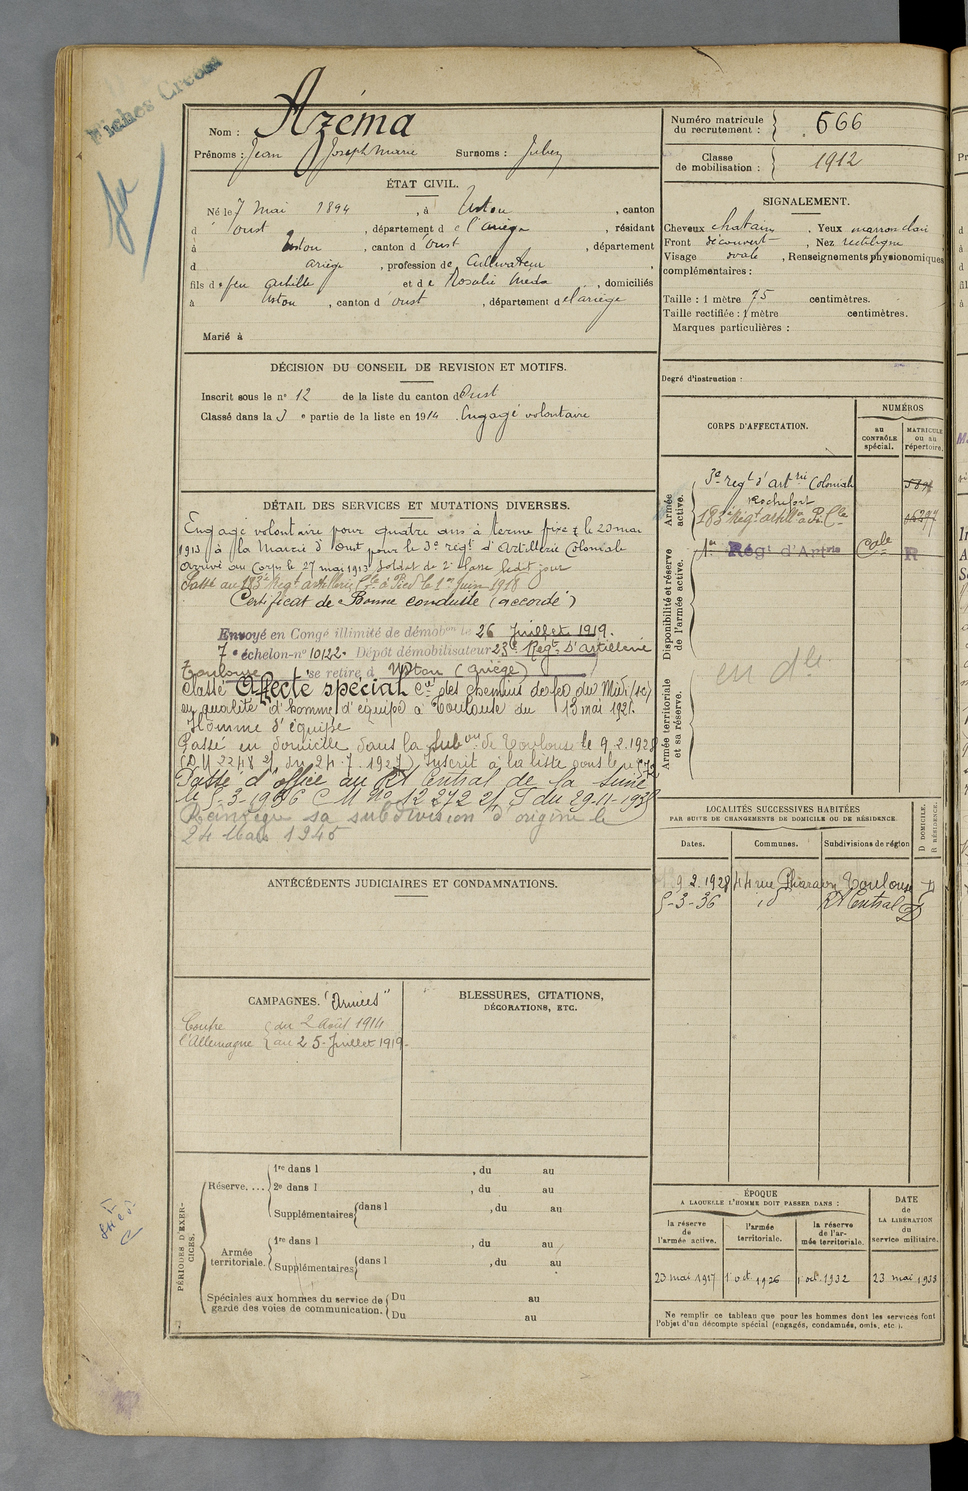 Fiches Créées
Nom : Azéma
Prénoms : Jean Joseph Marie Surnoms :
Numéro matricule du recrutement : 666
Classe de mobilisation : 1912
ÉTAT CIVIL.
Né le 7 Mai 1894, à Ustou, canton
d Oust, département de l'Ariège, résidant
à Ustou, canton d'Oust, département
d Ariège, profession de Cultivateur,
fils de feu Achille et de Rosalie, domiciliés
à Ustou, canton d'Oust, département de l'ariège
Marié à
SIGNALEMENT.
Cheveux chatains. Yeux marron clair
Front découvert, Nez rectiligne
Visage ovale, Renseignements physionomiques
complémentaires :
Taille : 1 mètre 75 centimètres.
Taille rectifiée : 1 mètre centimètres.
Marques particulières :
Degré d'instruction :
DÉCISION DU CONSEIL DE REVISION ET MOTIFS.
Inscrit sous le n° 12 de la liste du canton d'Oust
Classé dans la 3e partie de la liste en 1914. Engagé volontaire
CORPS D'AFFECTATION.
NUMÉROS
au CONTRÔLE spécial.
MATRICULE ou au répertoire.
Armée active.
3e regt d'artrie Coloniale
Rochefort
183e Régt artillie à P. Cle
1er Régt d'Artrie Cole R
Disponibilité et réserve de l'armée active.
en dle
Armée territoriale et sa réserve.
DÉTAIL DES SERVICES ET MUTATIONS DIVERSES.
Engagé volontaire pour quatre ans à terme fixe le 23 mai
1913 à la Mairie d'Oust pour le 3e régt d'Artillerie Coloniale
Arrivé au Corps le 27 mai 1913 soldat de 2e classe ledit jour
Passé au 183e Regt artillerie Cle à Pied le 1er Juin 1918
Certificat de Bonne conduite (accordé)
Envoyé en Congé illimité de démobon le 26 Juillet 1919.
7e échelon-n° 10122. Dépôt démobilisateur 23e Régt. d'artillerie
Toulouse se retire à Ustou (Ariège)
Classé Affecté spécial Cie des chemins de fer du Midi
en qualité d'homme d'équipe à Toulouse du 13 mai 1921.
Homme d'équipe
Passé en domicile dans la Subon de Toulouse le 9.2.1928
(DM 2248 2/ du 24.7.1927) Inscrit à la liste sous le n°
Passé d'office au Rt Central de la Seine
le 5-3-1936 C M No 12 272 2/ du 29-11-1938
Réintègre sa subdivision d'origine le
24 Mars 1945
LOCALITÉS SUCCESSIVES HABITÉES
PAR SUITE DE CHANGEMENTS DE DOMICILE OU DE RÉSIDENCE.
D DOMICILE. R RÉSIDENCE.
Dates. Communes. Subdivisions de région
9.2.1928 44 rue Pharaon Toulouse D
5-3-36 id Rt Central D
ANTÉCÉDENTS JUDICIAIRES ET CONDAMNATIONS.
CAMPAGNES. "Armées"
Contre l'Allemagne { du 2 Août 1914
au 25-Juillet 1919-
BLESSURES, CITATIONS,
DÉCORATIONS, ETC.
PÉRIODES D'EXERCICES.
Réserve.... 1re dans l , du au
2e dans l , du au
Supplémentaires dans l , du au
Armée territoriale. 1re dans l , du au
Supplémentaires dans l , du au
Spéciales aux hommes du service de garde des voies de communication. Du au
Du au
ÉPOQUE
A LAQUELLE L'HOMME DOIT PASSER DANS :
la réserve de l'armée active.
l'armée territoriale.
la réserve de l'armée territoriale.
DATE de LA LIBÉRATION du service militaire.
23 mai 1917 1 oct 1926 1 oct. 1932 23 mai 1938
Ne remplir ce tableau que pour les hommes dont les services font
l'objet d'un décompte spécial (engagés, condamnés, omis, etc.).